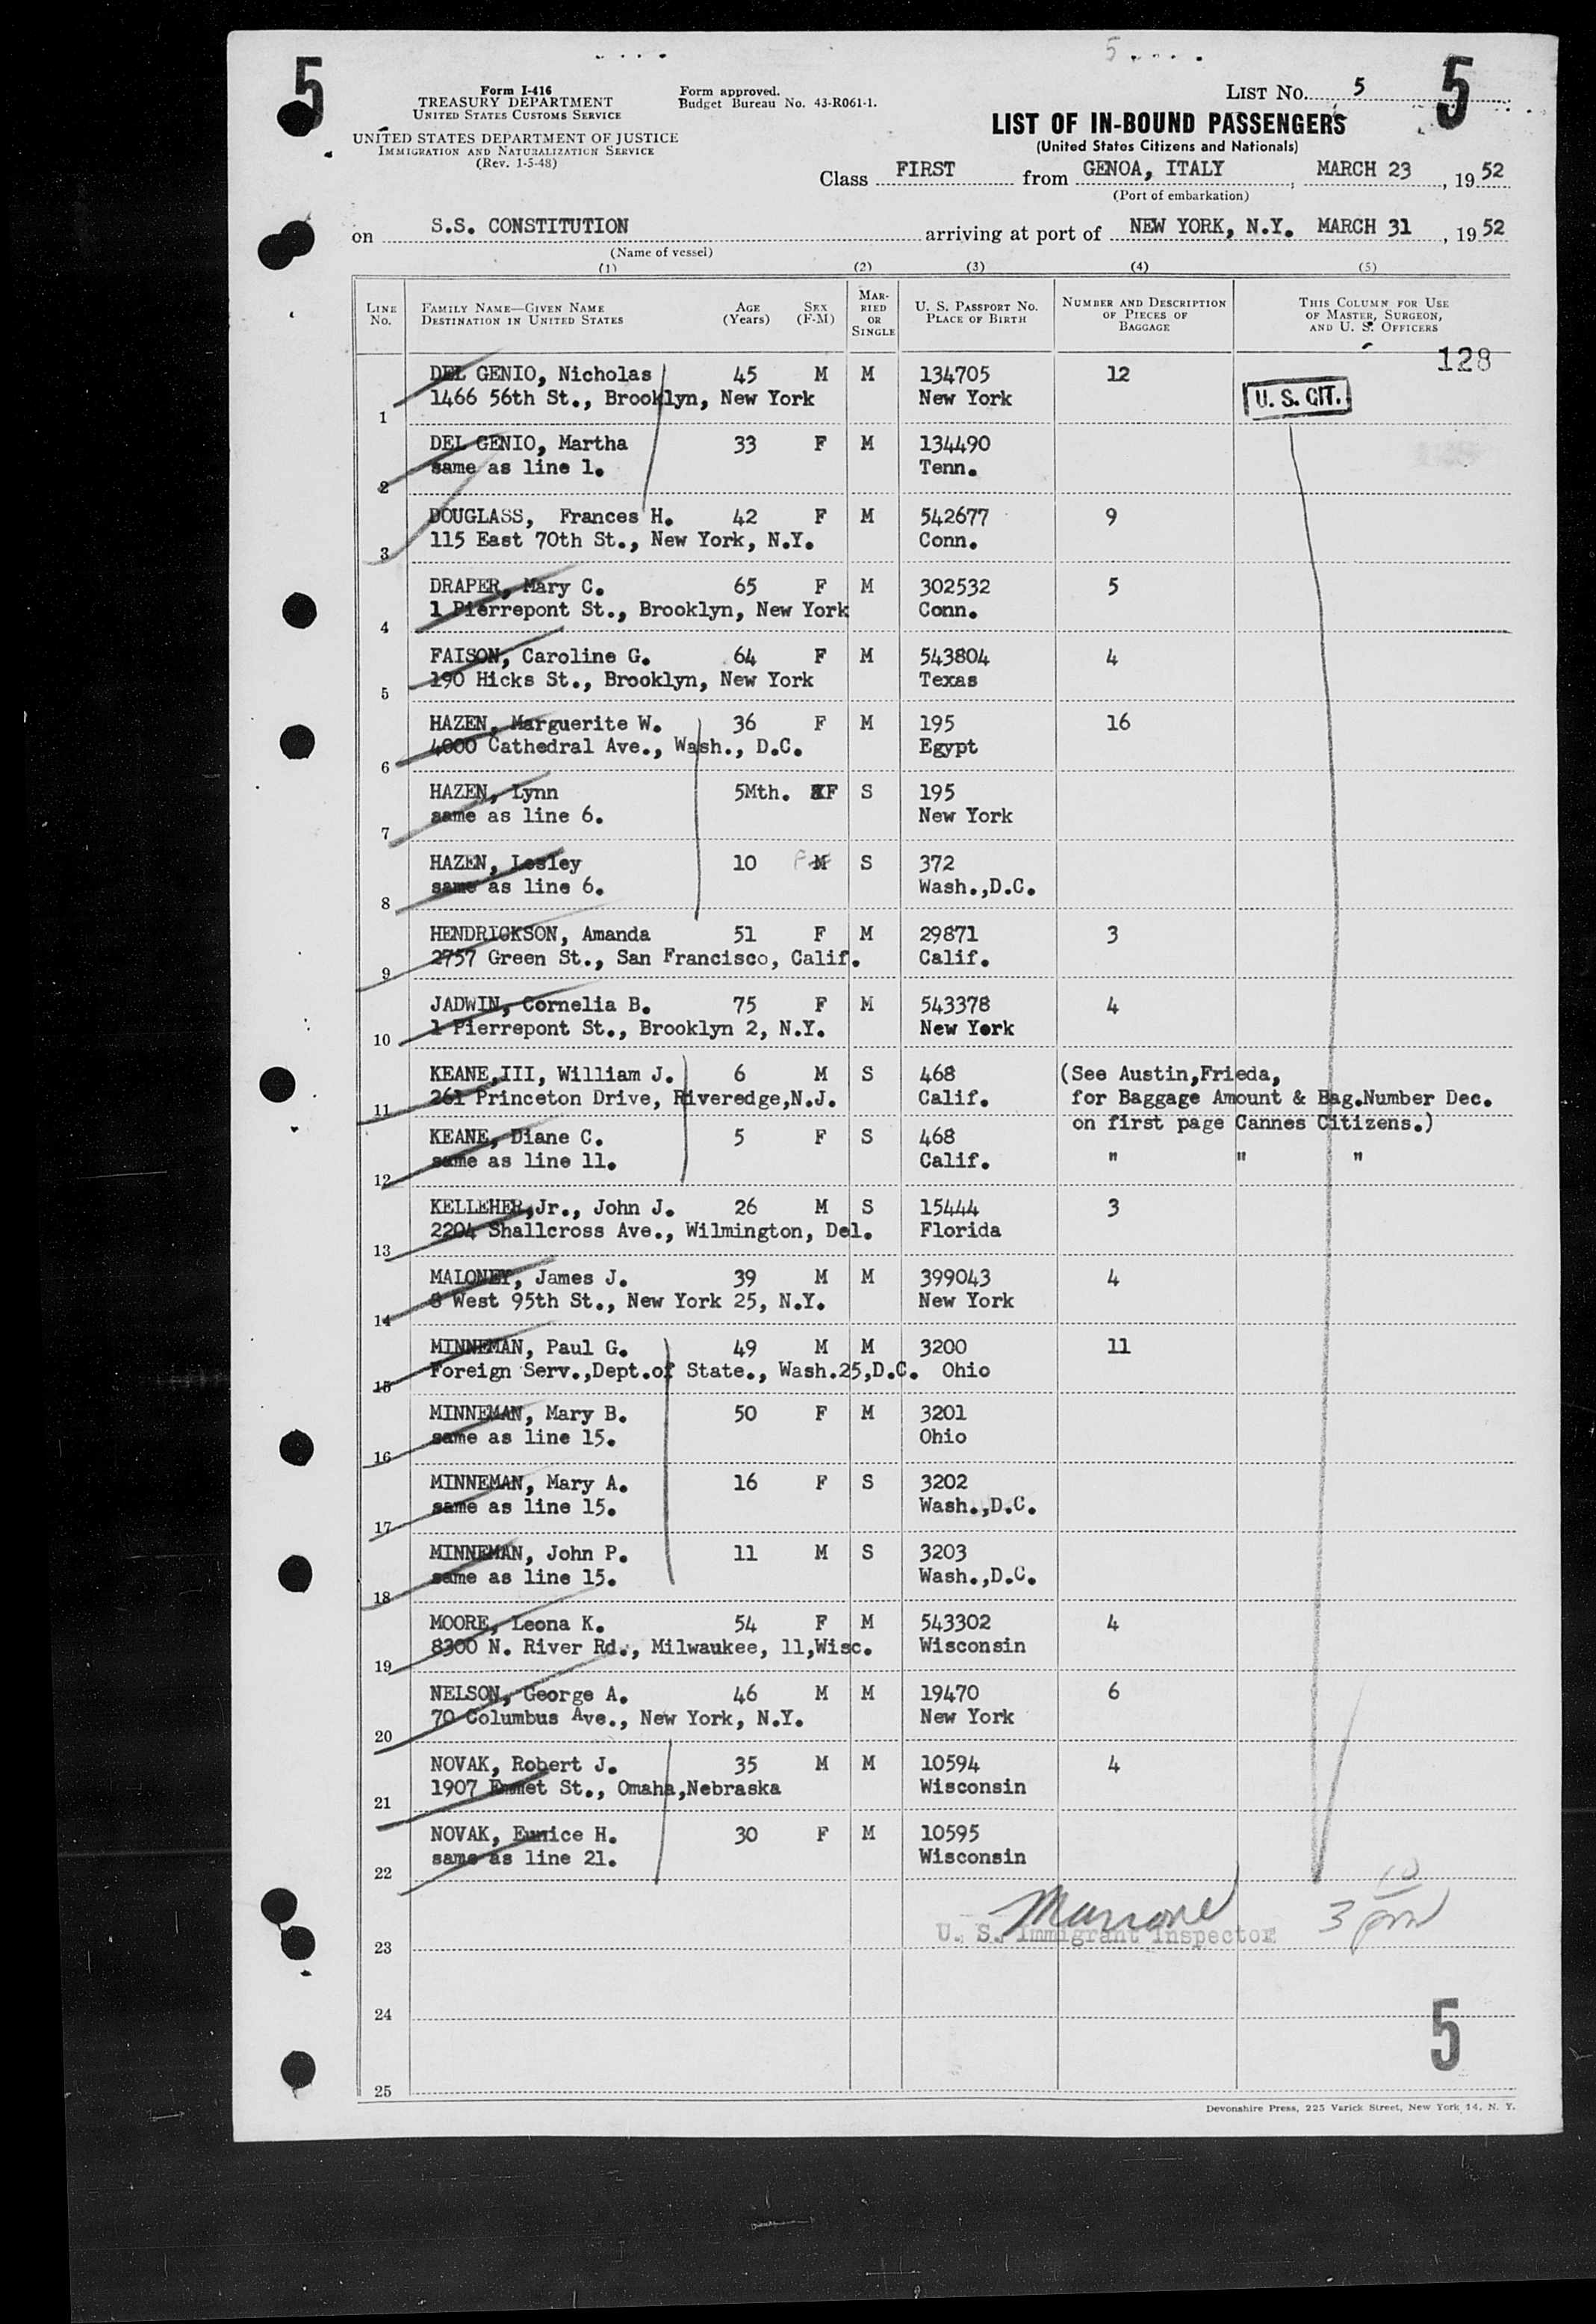 5
5 . . . .
5
Form I-416
TREASURY DEPARTMENT
UNITED STATES CUSTOMS SERVICE
UNITED STATES DEPARTMENT OF JUSTICE
IMMIGRATION AND NATURALIZATION SERVICE
(Rev. 1-5-48)
Form approved.
Budget Bureau No. 43-R061-1.
LIST NO. 5
LIST OF IN-BOUND PASSENGERS
(United States Citizens and Nationals)
Class FIRST from GENOA, ITALY, MARCH 23, 1952
(Port of embarkation)
on S.S. CONSTITUTION arriving at port of NEW YORK, N.Y. MARCH 31, 1952
(Name of vessel)
(1) (2) (3) (4) (5)
LINE NO. FAMILY NAME—GIVEN NAME DESTINATION IN UNITED STATES AGE (Years) SEX (F-M) MARRIED OR SINGLE U. S. PASSPORT NO. PLACE OF BIRTH NUMBER AND DESCRIPTION OF PIECES OF BAGGAGE THIS COLUMN FOR USE OF MASTER, SURGEON, AND U. S. OFFICERS
128
DEL GENIO, Nicholas 45 M M 134705 12
1 1466 56th St., Brooklyn, New York New York U. S. CIT.
DEL GENIO, Martha 33 F M 134490
2 same as line 1. Tenn.
DOUGLASS, Frances H. 42 F M 542677 9
3 115 East 70th St., New York, N.Y. Conn.
DRAPER, Mary C. 65 F M 302532 5
4 1 Pierrepont St., Brooklyn, New York Conn.
FAISON, Caroline G. 64 F M 543804 4
5 190 Hicks St., Brooklyn, New York Texas
HAZEN, Marguerite W. 36 F M 195 16
6 4000 Cathedral Ave., Wash., D.C. Egypt
HAZEN, Lynn 5Mth. F S 195
7 same as line 6. New York
HAZEN, Lesley 10 F M S 372
8 same as line 6. Wash.,D.C.
HENDRICKSON, Amanda 51 F M 29871 3
9 2757 Green St., San Francisco, Calif. Calif.
JADWIN, Cornelia B. 75 F M 543378 4
10 1 Pierrepont St., Brooklyn 2, N.Y. New York
KEANE,III, William J. 6 M S 468 (See Austin,Frieda,
11 261 Princeton Drive, Riveredge,N.J. Calif. for Baggage Amount & Bag.Number Dec.
on first page Cannes Citizens.)
KEANE, Diane C. 5 F S 468
12 same as line 11. Calif. " " "
KELLEHER,Jr., John J. 26 M S 15444 3
13 2204 Shallcross Ave., Wilmington, Del. Florida
MALONEY, James J. 39 M M 399043 4
14 8 West 95th St., New York 25, N.Y. New York
MINNEMAN, Paul G. 49 M M 3200 11
15 Foreign Serv.,Dept.of State., Wash.25,D.C. Ohio
MINNEMAN, Mary B. 50 F M 3201
16 same as line 15. Ohio
MINNEMAN, Mary A. 16 F S 3202
17 same as line 15. Wash.,D.C.
MINNEMAN, John P. 11 M S 3203
18 same as line 15. Wash.,D.C.
MOORE, Leona K. 54 F M 543302 4
19 8300 N. River Rd., Milwaukee, 11,Wisc. Wisconsin
NELSON, George A. 46 M M 19470 6
20 70 Columbus Ave., New York, N.Y. New York
NOVAK, Robert J. 35 M M 10594 4
21 1907 Emmet St., Omaha,Nebraska Wisconsin
NOVAK, Eunice H. 30 F M 10595
22 same as line 21. Wisconsin
10
3 pm
U. S. Immigrant Inspector
23
24
5
25
Devonshire Press, 225 Varick Street, New York 14, N. Y.